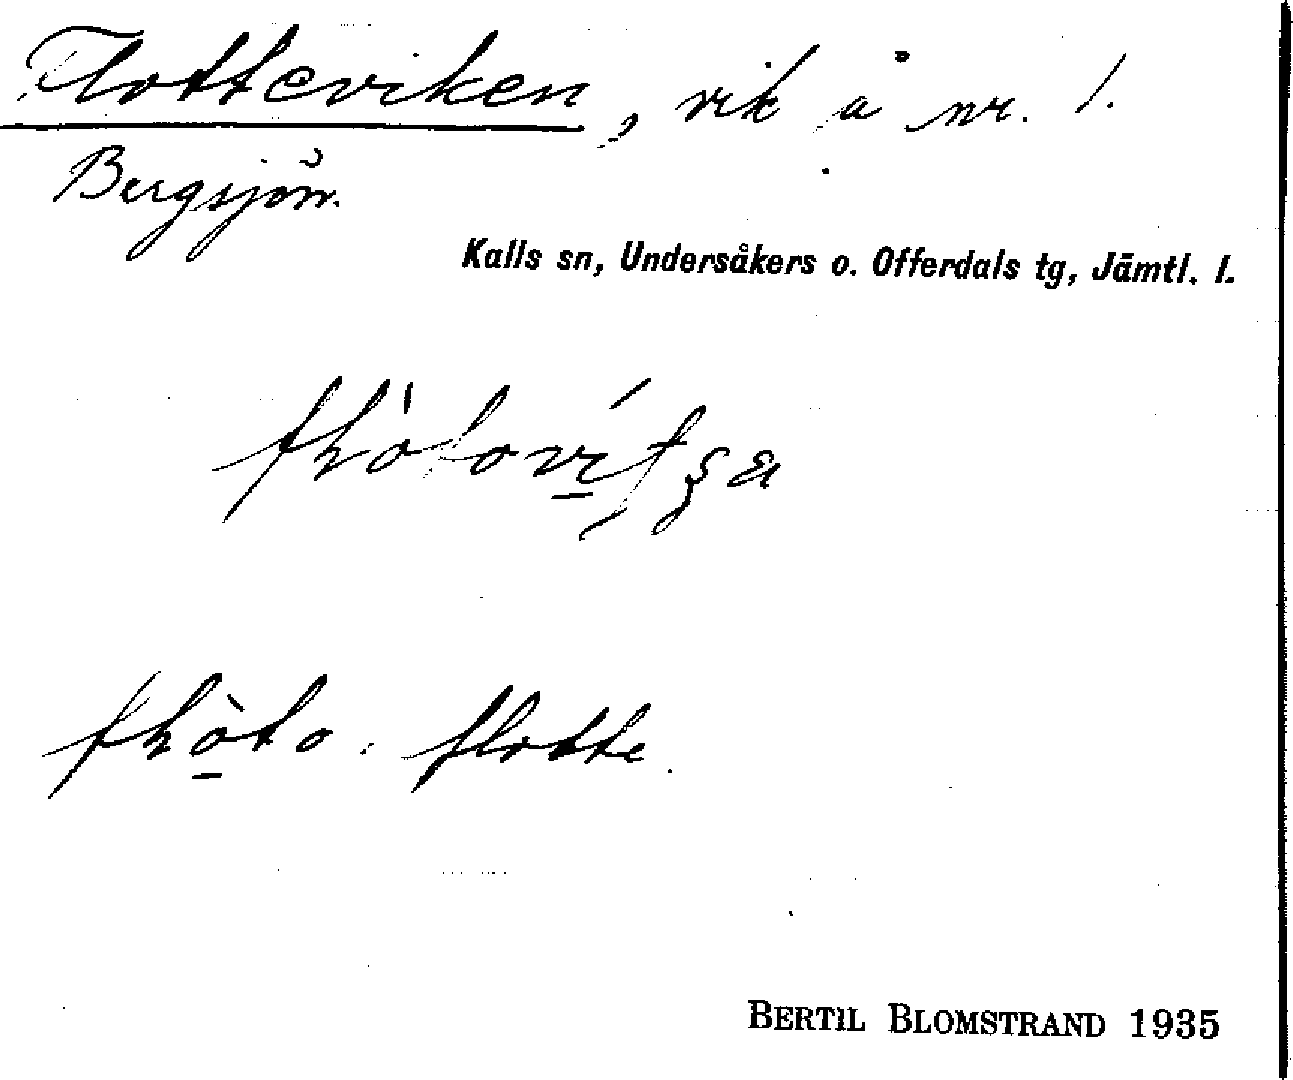 Flotteviken, vik å nr. 1.
Bergsjön.
Kalls sn, Undersåkers o. Offerdals tg, Jämtl. l.
: flotte.
BERTIL BLOMSTRAND 1935